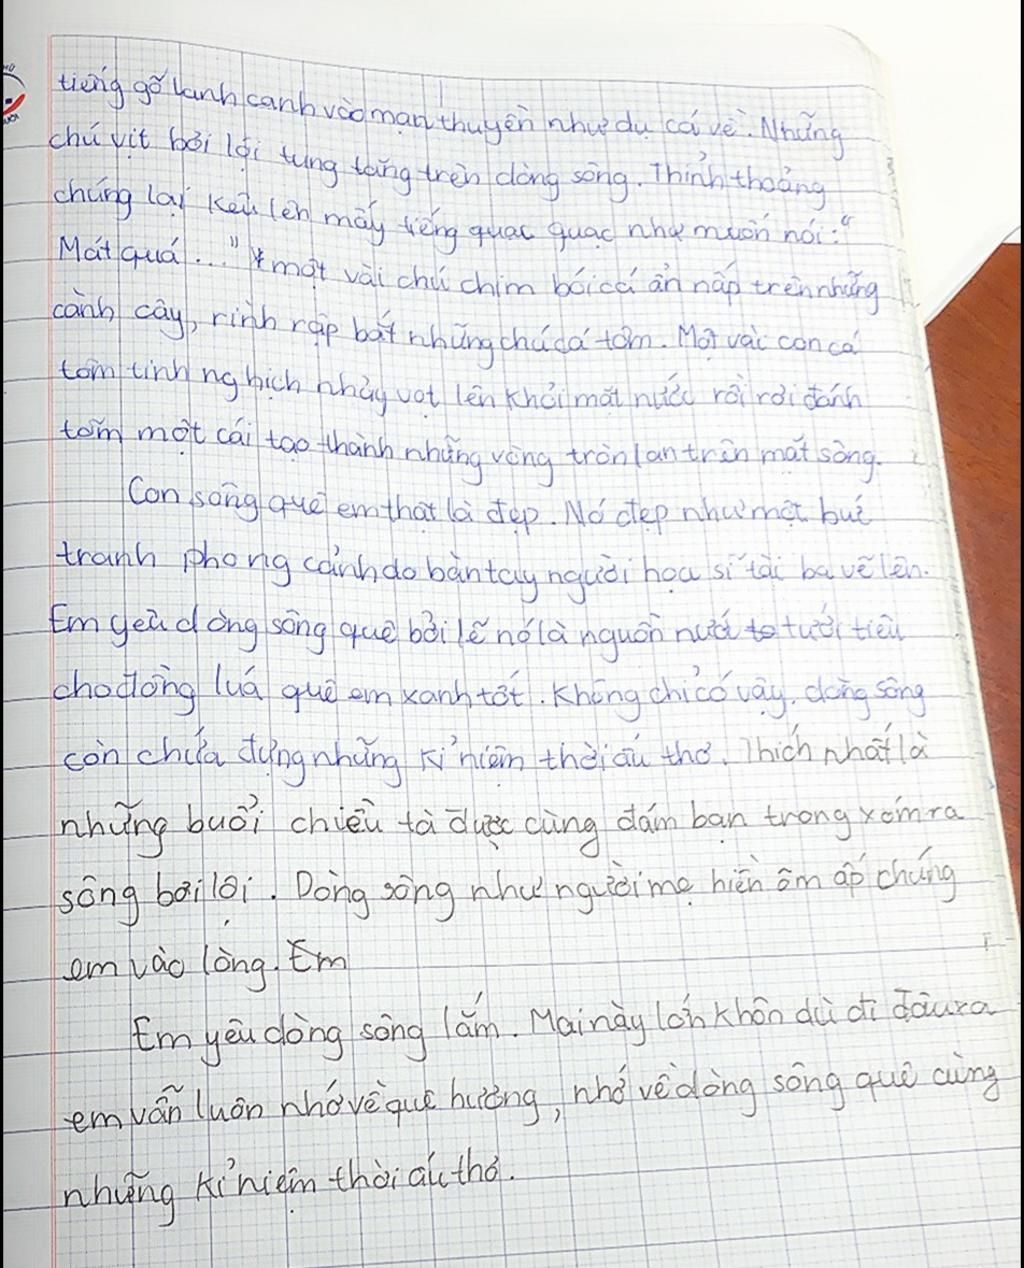 tiếng gõ lanh canh vào mạn thuyền như dụ cá về. Những
chú vịt bơi lội tung tăng trên dòng sông. Thỉnh thoảng
chúng lại kêu lên mấy tiếng quạc quạc như muốn nói: "
Mát quá ..." một vài chú chim bói cá ẩn nấp trên những
cành cây, rình rập bắt những chú cá tôm. Một vài con cá
tôm tinh nghịch nhảy vọt lên khỏi mặt nước rồi rơi đánh
tõm một cái tạo thành những vòng tròn lan trên mặt sông.
Con sông quê em thật là đẹp. Nó đẹp như một bức
tranh phong cảnh do bàn tay người họa sĩ tài ba vẽ lên.
Em yêu dòng sông quê bởi lẽ nó là nguồn nước tưới tiêu
cho đồng luá quê em xanh tốt. Không chỉ có vậy, dòng sông
còn chứa đựng những kỉ niệm thời ấu thơ. Thích nhất là
những buổi chiều tà được cùng đám bạn trong xóm ra
sông bơi lội. Dòng sông như người mẹ hiền ôm ấp chúng
em vào lòng. Em
Em yêu dòng sông lắm. Mai này lớn khôn dù đi đâu xa
em vẫn luôn nhớ về quê hương, nhớ về dòng sông quê cùng
những kỉ niệm thời ấu thơ.